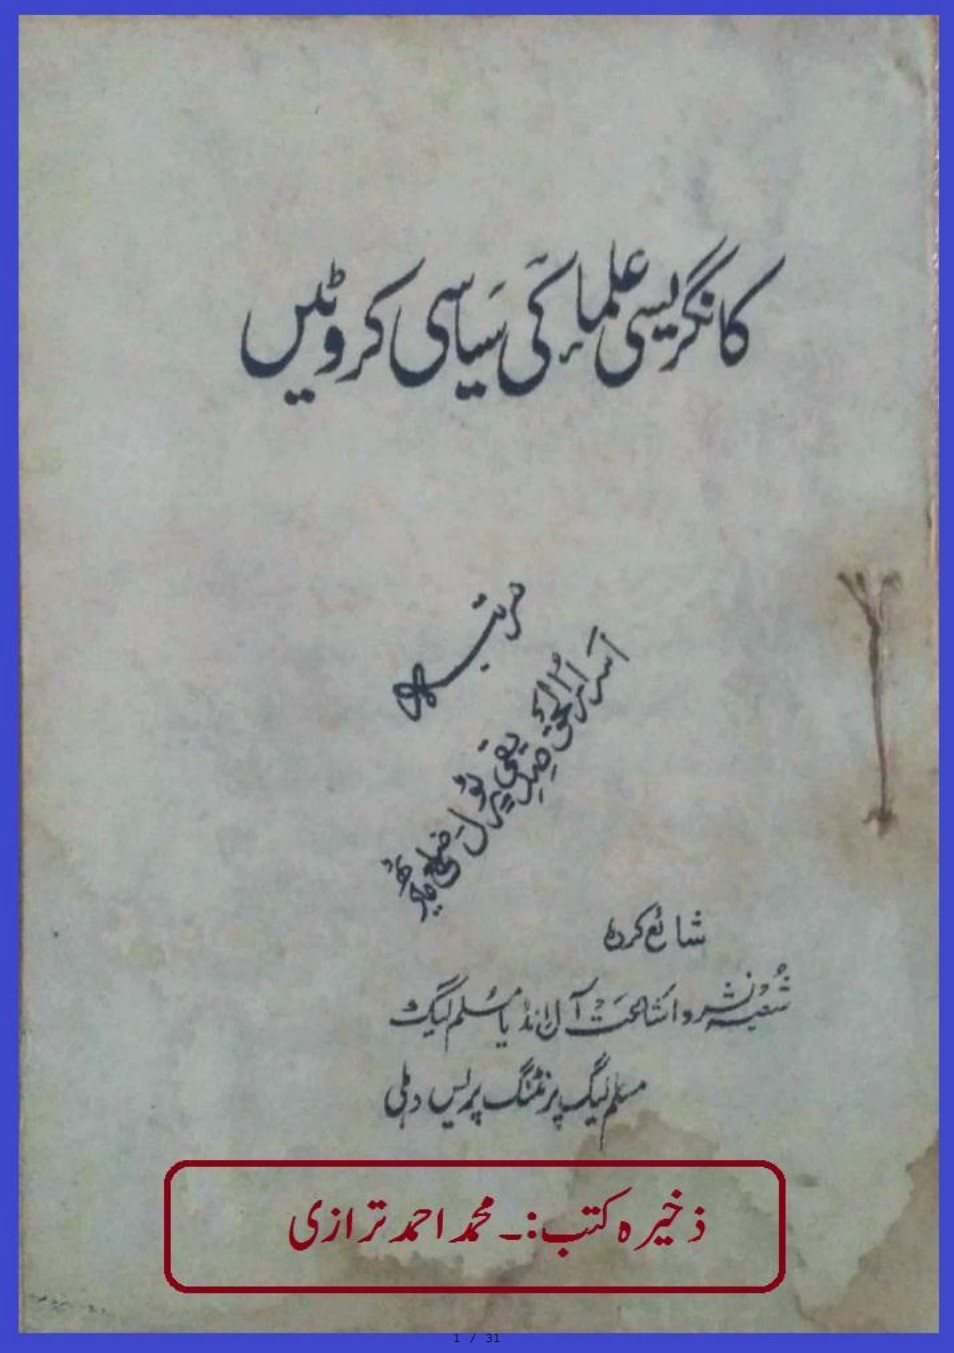 کانگریسی علمائے کی سیاسی کروٹیں
مرتبہ
اسرار الحق صدیقی
شائع کردہ
شعبہ نشر و اشاعت آل انڈیا مسلم لیگ
مسلم لیگ پرنٹنگ پریس دہلی
ذخیرہ کتب:۔ محمد احمد ترازی
1 / 31